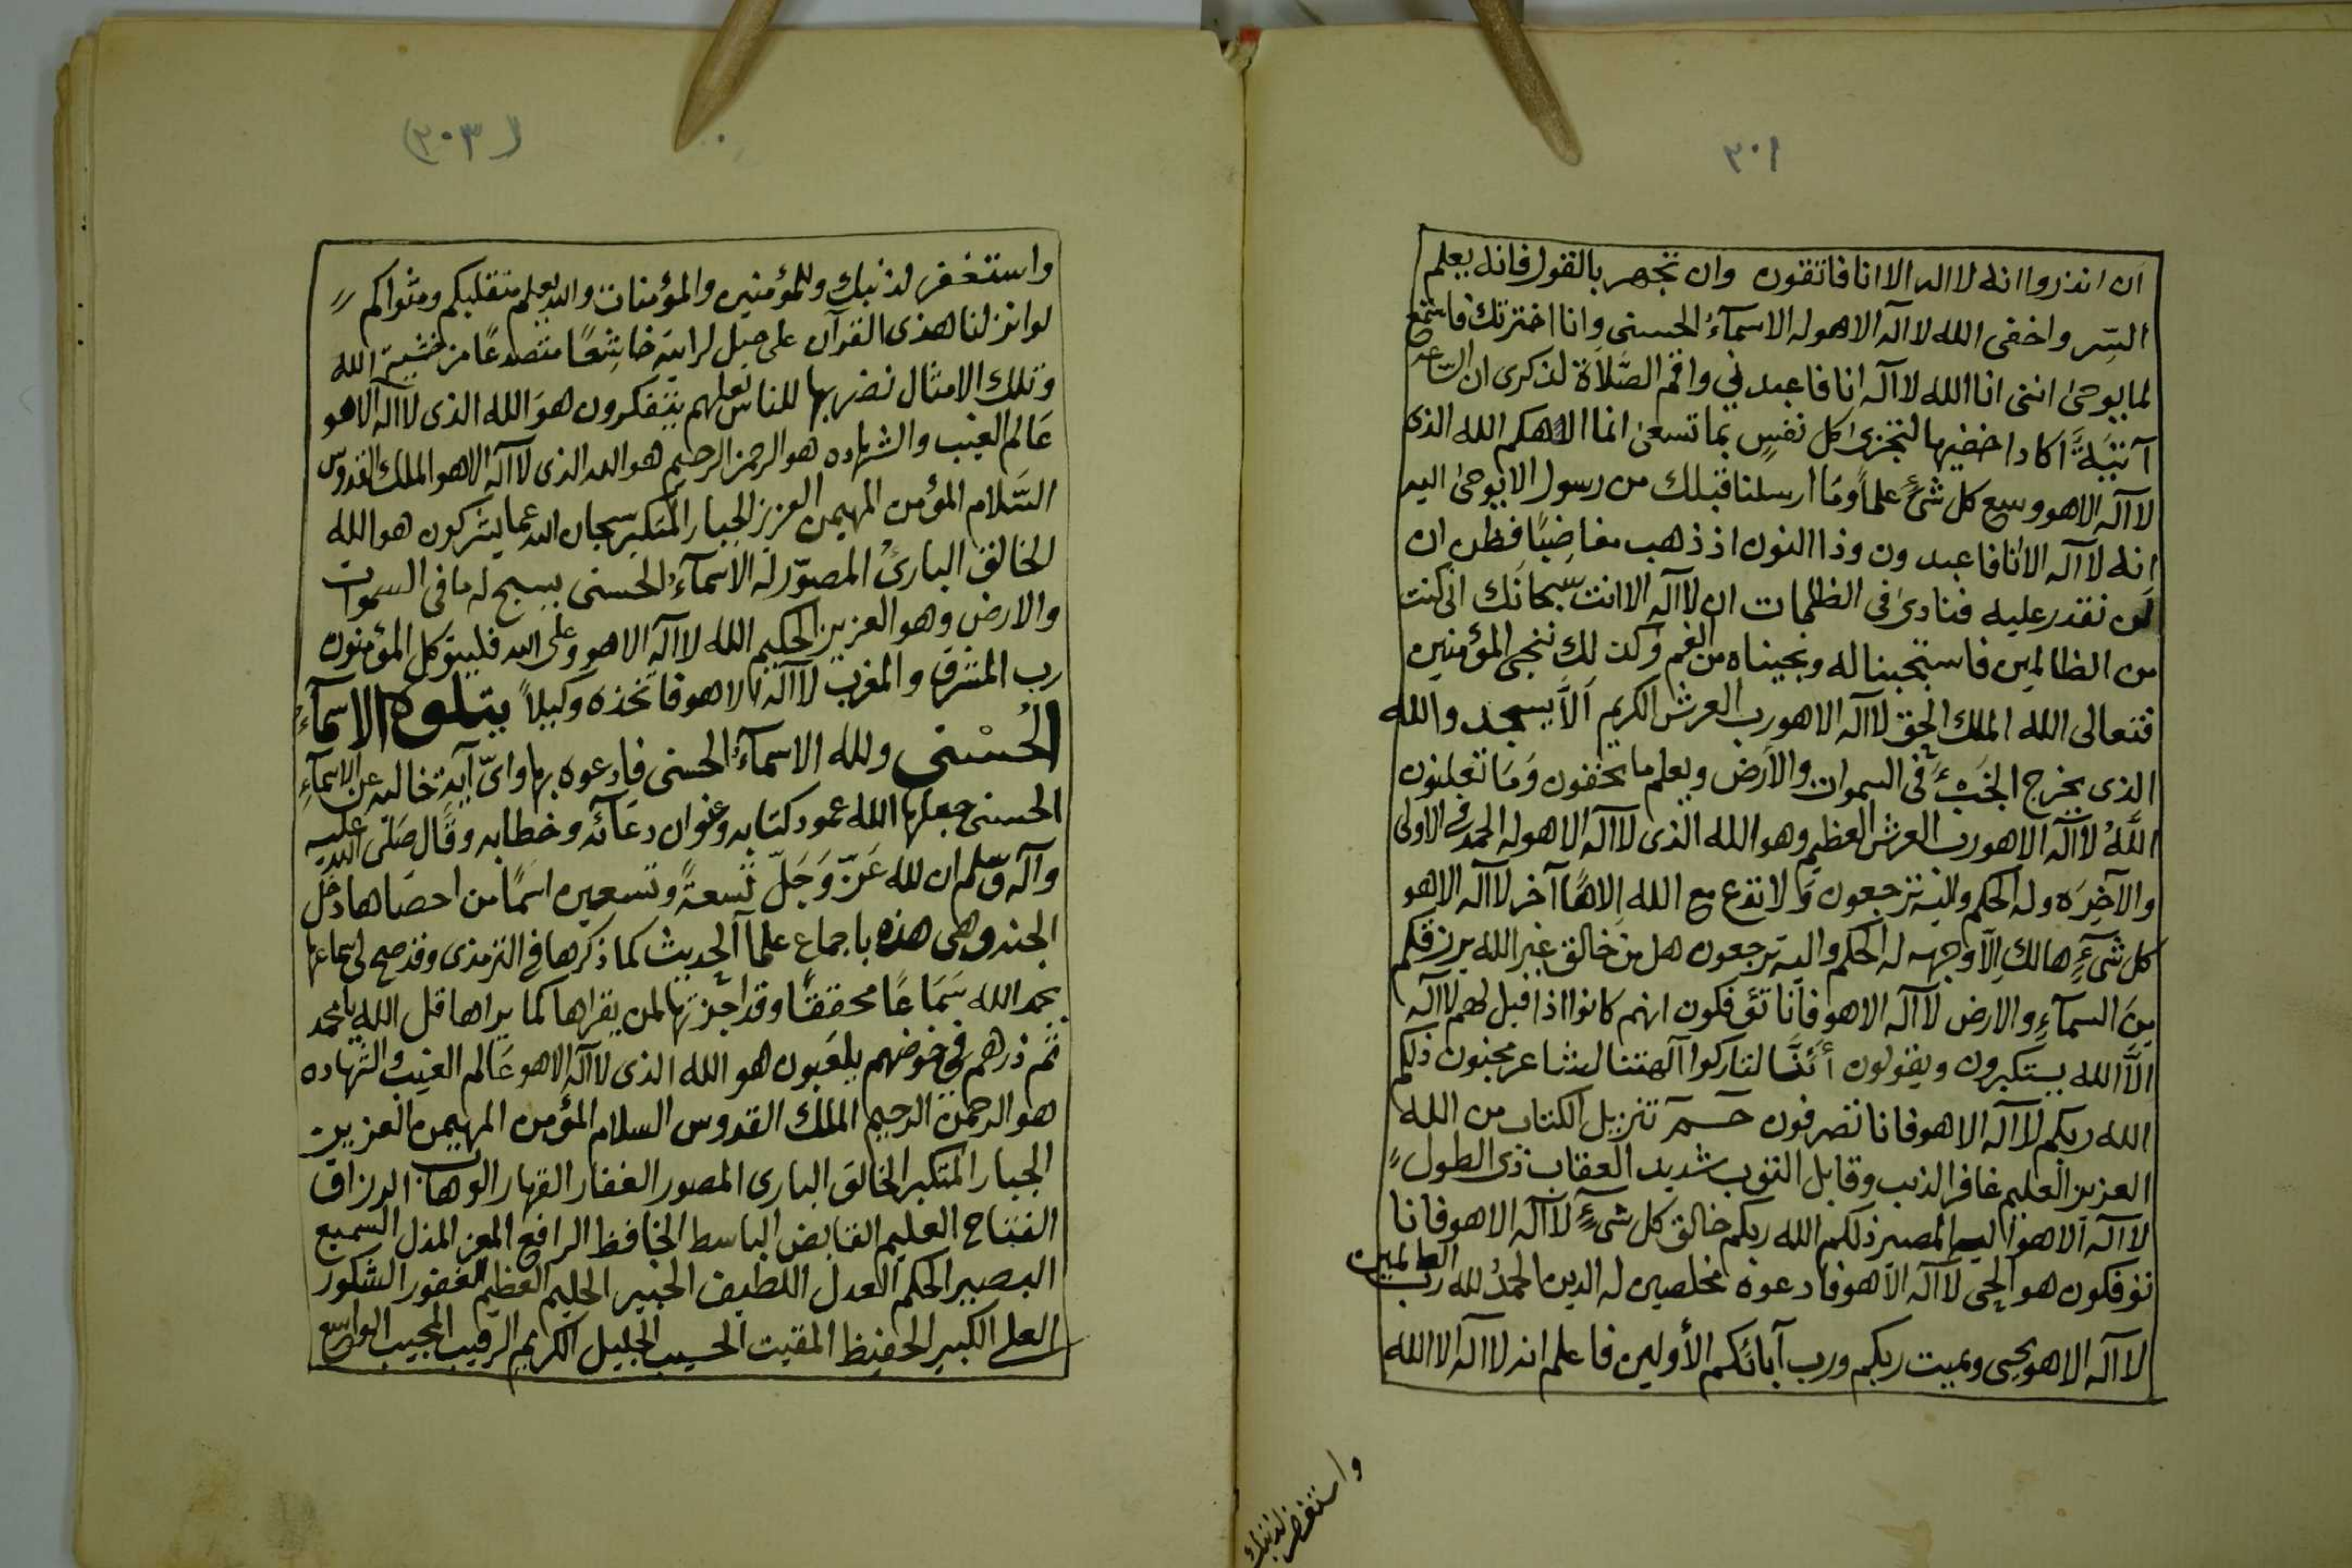 ٣٠١
ان انذروا انه لا اله الا انا فاتقون وان تجهر بالقول فانه يعلم
السّر واخفى الله لا آله الا هو له الاسمآءُ الحسنى وانا اخترتك فاستمع
لما يوحىٰ اننى انا الله لا آله انا فاعبدنى واقم الصَّلاَة لذكرى ان الساعة
آتيَةً اكاد اخفيها لتجزىٰ كل نفسٍ بما تسعىٰ انما الاهكم الله الذى
لا آله الا هو وسع كل شئٍ علماً ومَا ارسلنا قبلك من رسول الا يوحىٰ اليه
انه لا آله الا انا فاعبدون وذا النون اذ ذهب مغاضِبًا فظن ان
لن نقدر عليه فنادىٰ فى الظلمات ان لا آله الا انت سبحانَك انى كنت
من الظالمين فاستجبنا له ونجيناه من الغم وكذلِك ننجى المؤمنين
فتعالى الله الملك الحق لا اله الا هو رب العرش الكريم اَلاَّ يسجد والله
الذى يخرج الخَبْءَ فى السموات والاَرض ويعلم ما يخفون وَمَا تعلنون
اللهُ لا آله الا هو رب العرش العظيم وهو الله الذى لا اله الا هو له الحمد فى الاولى
والآخِرَه وله الحكم واليه ترجعون وَلا تدع مع الله اِلاهًا آخر لا آله الا هو
كل شىءٍ هالك اِلاَّ وجهه له الحكم واليه ترجعون هل من خالق غير الله يرزقكم
مِنَ السمآءِ والارض لا آله الا هو فانا تؤفكون انهم كانوا اذا قيل لهم لا آله
الاَّ الله يستكبرون ويقولون أئنَّا لتاركوا آلهتنا لشاعر مجنون ذلكم
الله ربكم لا آله الا هو فانا تصرفون حـم تنزيل الكتاب من الله
العزيز العليم غافر الذنب وقابل التوب شديد العقاب ذى الطول
لا آله الا هو اليه المصير ذلكم الله ربكم خالق كل شىءٍ لا آله الا هو فانا
تؤفكون هو الحى لا آله الا هو فادعوه مخلصين له الدين الحمدُ لله رب العالمين
لا آله الا هو يحيى ويميت ربكم ورب آبائكم الأولين فاعلم انه لا آله الا الله
واستغفر لذنبك
(٣٠٢)
واستغفر لذنبك وللمؤمنين والمؤمنات والله يعلم متقلبكم ومثواكم
لو انزلنا هذى القرآن على جبل لرايته خاشِعًا متصدعًا من خشية الله
وتلك الامثال نضربها للناس لعلهم يتفكرون هوَ الله الذى لا آله الا هو
عَالم الغيب والشهاده هو الرحمن الرحيم هو الله الذى لا آله الا هو الملك القدوس
السَّلام المؤمن المهيمن العزيز الجبار المتكبر سبحان الله عما يشركون هو الله
الخالق البارئُ المصوّر له الاَسمآءُ الحسنى يسبح له ما فى السموات
والارض وهو العزيز الحكيم الله لا آله الا هو وعلى الله فليتوكل المؤمنون
رب المشرق والمغرب لا آله الا هو فاتخذه وكيلاً يتلوه الاسمآءُ
الحُسْنى ولله الاسمآءُ الحسنى فادعوه بها واىّ آيةٍ خاليه عن الاسمآءِ
الحسنى جعلها الله عمود كتابه وعنوان دعآئه وخطابه وقال صَلّى الله عليه
وآله وسلم ان لله عَزّ وَجَلّ تسعةً وتسعين اسمًا من احصاها دخل
الجنه وهى هذه باجماع علمآ الحديث كما ذكرها فى الترمذى وقد صح لى سماعها
بحمد الله سَمَاعًا محققًا وقد اجزتها لمن يقراها كما يراها قل الله يا محمد
ثم ذرهم فى خوضهم يلعبون هو الله الذى لا آله الا هو عَالم الغيب والشهاده
هو الرحمن الرحيم الملك القدوس السلام المؤمن المهيمن العزيز
الجبار المتكبر الخالق البارى المصور الغفار القهار الوهاب الرزاق
الفتاح العليم القابض الباسط الخافظ الرافع المعز المذل السميع
البصير الحكم العدل اللطيف الخبير الحليم العظيم الغفور الشكور
العلى الكبير الحفيظ المقيت الحسيب الجليل الكريم الرقيب المجيب الواسع